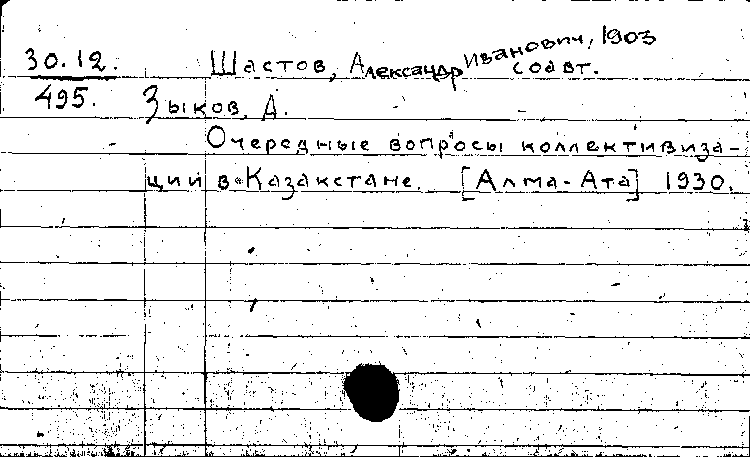 30.12. Шастов, Александр Иванович, 1903
соавт.
495. Зыков, А.
Очередные вопросы коллективиза-
ции в Казакстане. [Алма-Ата] 1930.